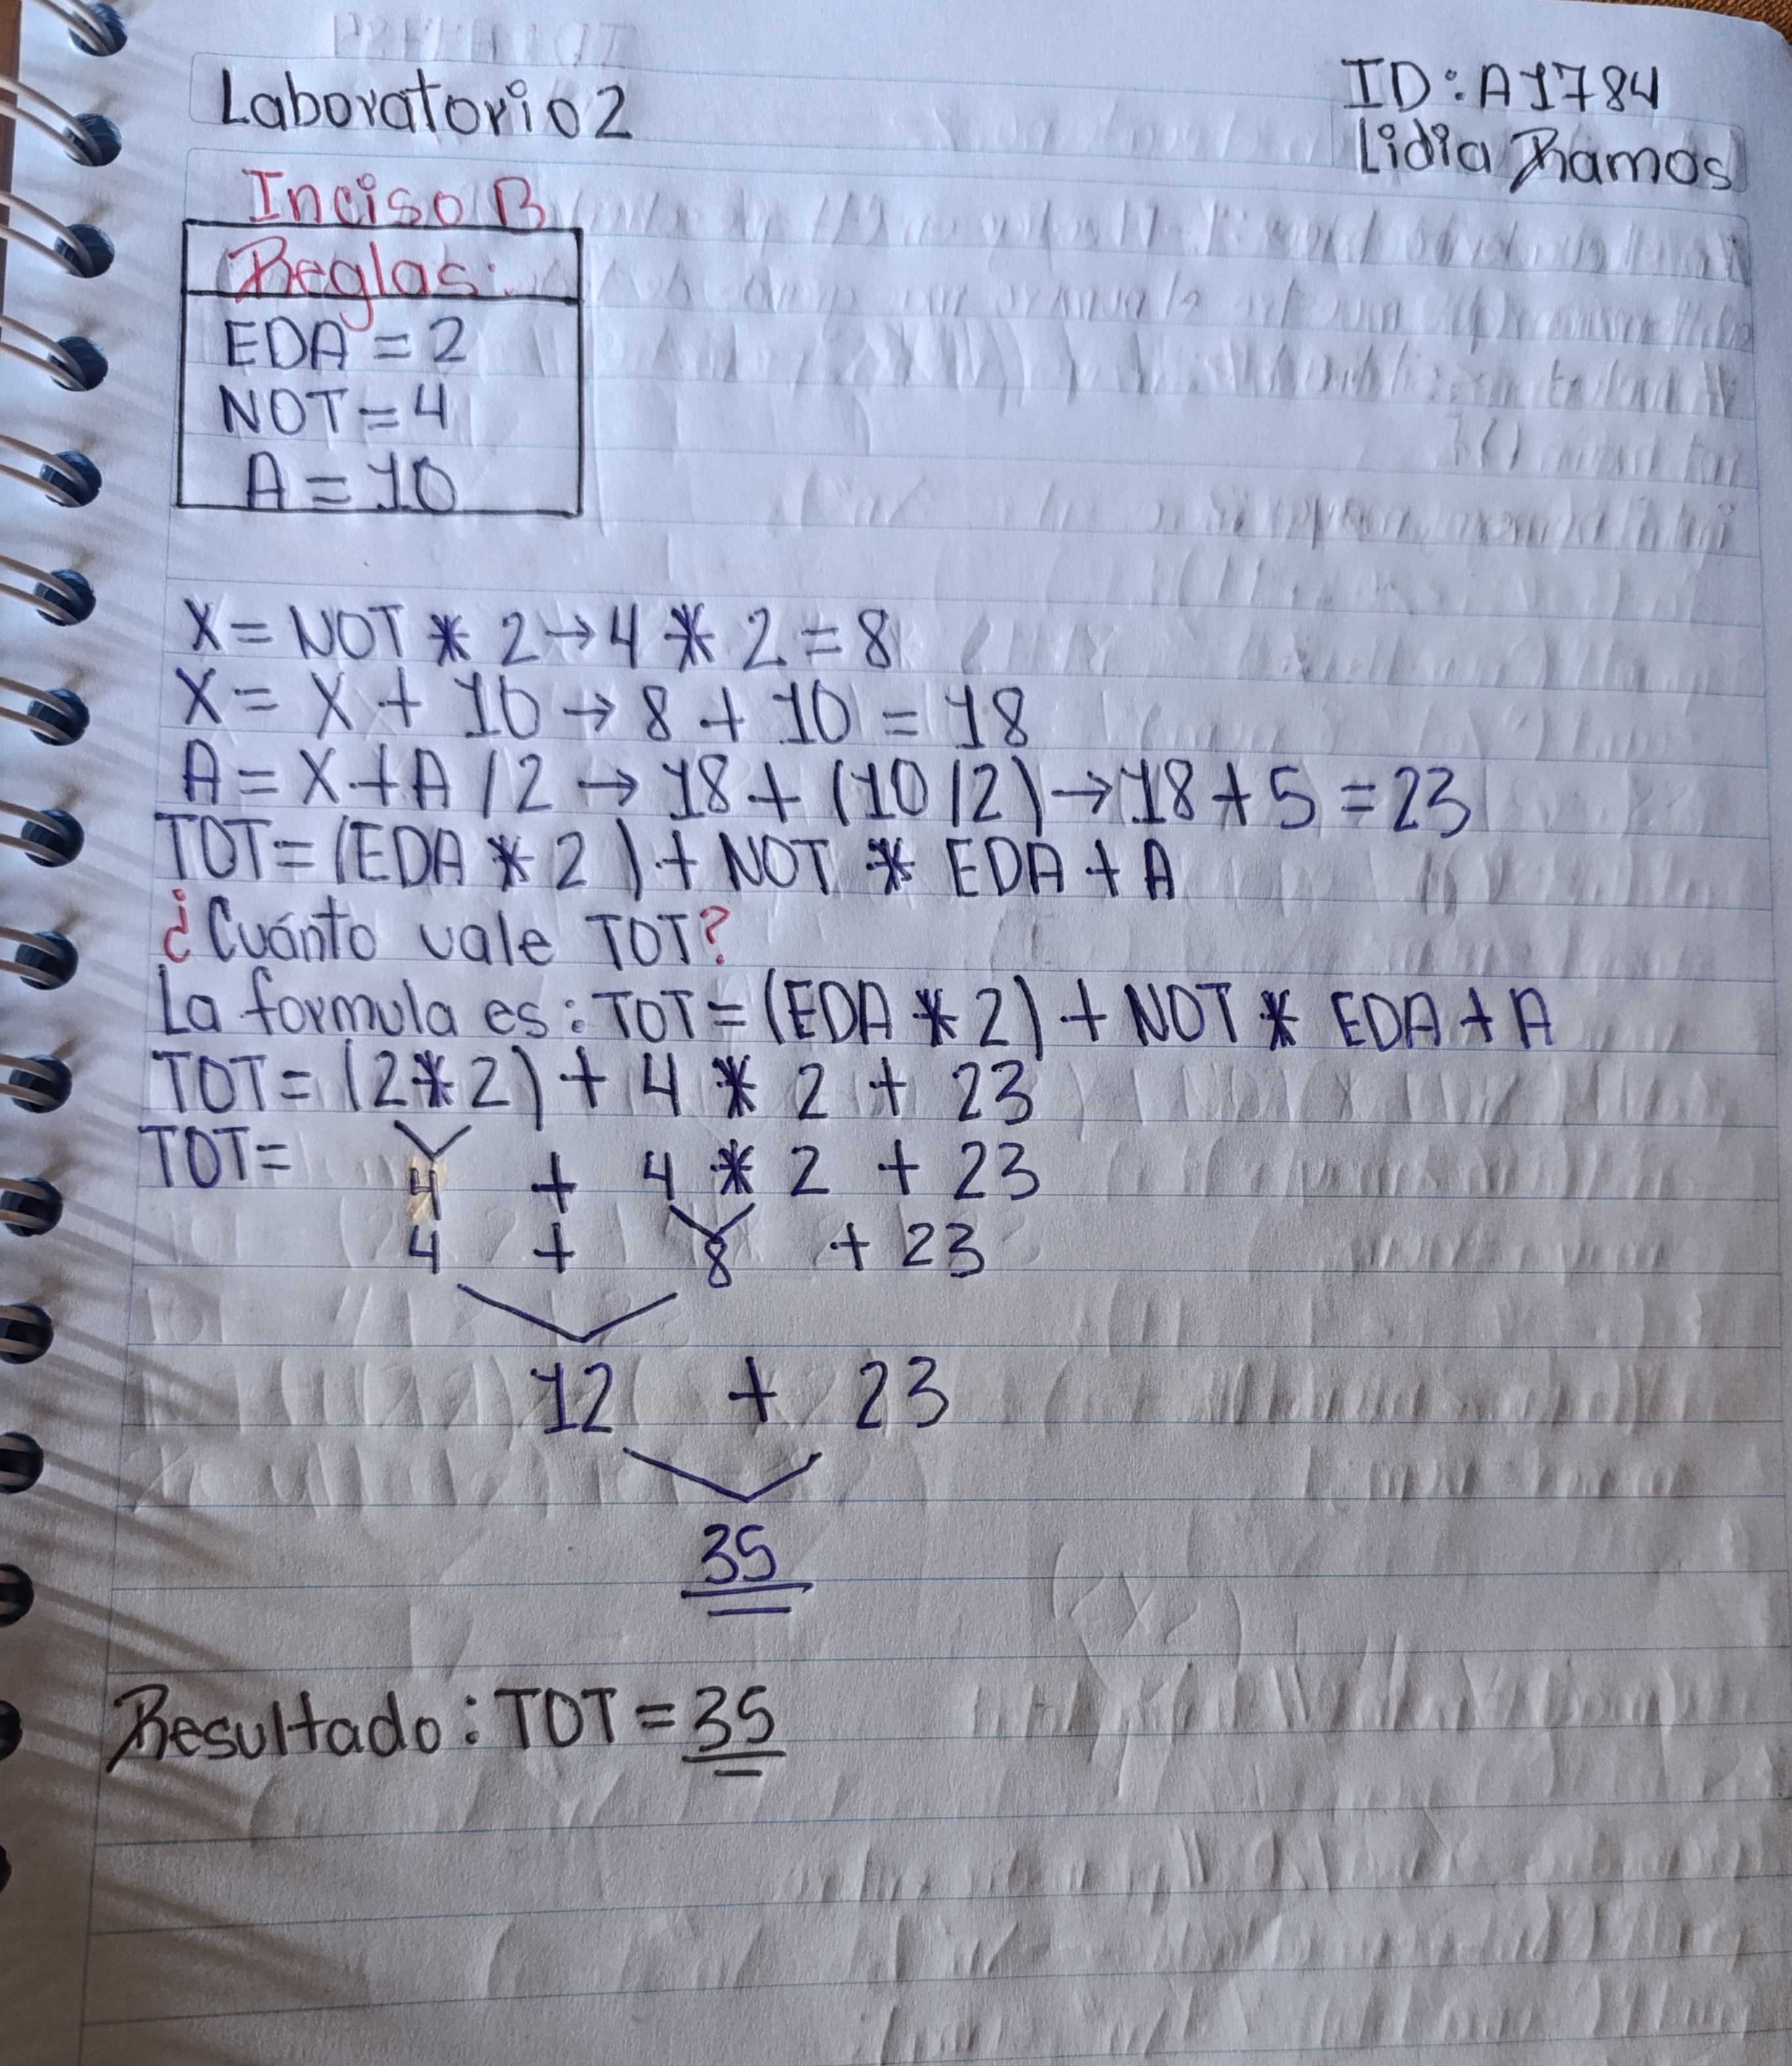 Laboratorio 2
ID: A1784
Lidia Ramos
Inciso B
Reglas:
EDA = 2
NOT = 4
A = 10
X = NOT * 2 → 4 * 2 = 8
X = X + 10 → 8 + 10 = 18
A = X + A / 2 → 18 + (10 / 2) → 18 + 5 = 23
TOT = (EDA * 2) + NOT * EDA + A
¿Cuánto vale TOT?
La formula es: TOT = (EDA * 2) + NOT * EDA + A
TOT = (2 * 2) + 4 * 2 + 23
TOT = 4 + 4 * 2 + 23
4 + 8 + 23
12 + 23
35
Resultado: TOT = 35